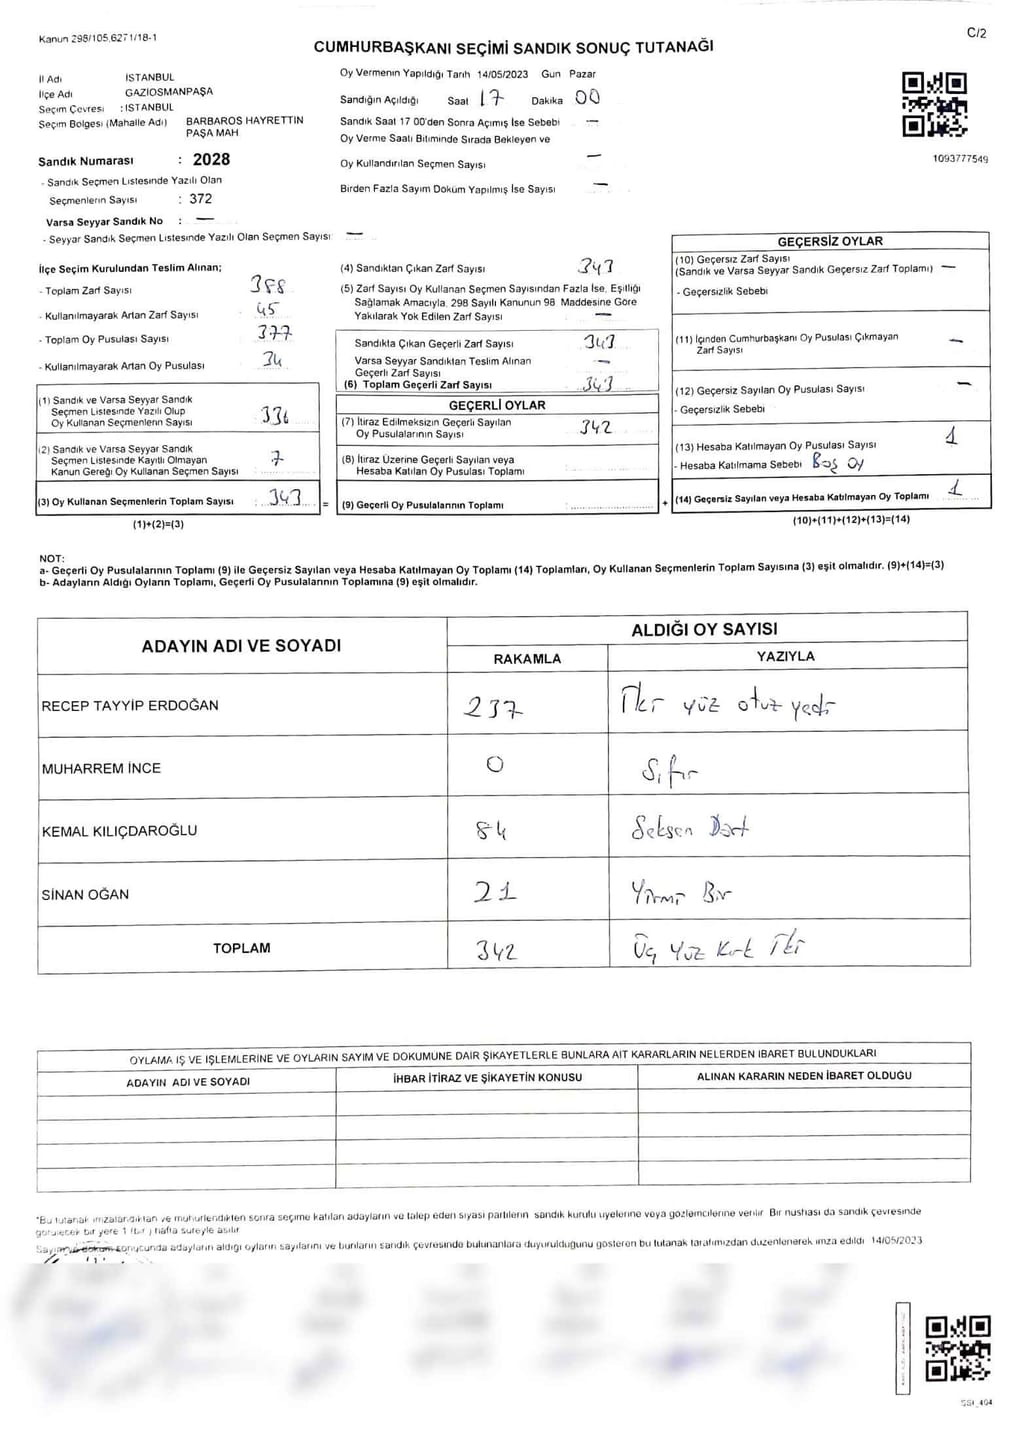 Kanun 298/105,6271/18-1
C/2
CUMHURBAŞKANI SEÇİMİ SANDIK SONUÇ TUTANAĞI
İl Adı İSTANBUL
İlçe Adı GAZİOSMANPAŞA
Seçim Çevresi : İSTANBUL
Seçim Bölgesi (Mahalle Adı) BARBAROS HAYRETTİN PAŞA MAH
Sandık Numarası : 2028
- Sandık Seçmen Listesinde Yazılı Olan
Seçmenlerin Sayısı : 372
Varsa Seyyar Sandık No : —
- Seyyar Sandık Seçmen Listesinde Yazılı Olan Seçmen Sayısı —
Oy Vermenin Yapıldığı Tarih 14/05/2023 Gün Pazar
Sandığın Açıldığı Saat 17 Dakika 00
Sandık Saat 17 00'den Sonra Açımış İse Sebebi —
Oy Verme Saati Bitiminde Sırada Bekleyen ve
Oy Kullandırılan Seçmen Sayısı —
Birden Fazla Sayım Döküm Yapılmış İse Sayısı —
1093777549
İlçe Seçim Kurulundan Teslim Alınan;
- Toplam Zarf Sayısı 388
- Kullanılmayarak Artan Zarf Sayısı 45
- Toplam Oy Pusulası Sayısı 377
- Kullanılmayarak Artan Oy Pusulası 34
(1) Sandık ve Varsa Seyyar Sandık
Seçmen Listesinde Yazılı Olup
Oy Kullanan Seçmenlerin Sayısı 336
(2) Sandık ve Varsa Seyyar Sandık
Seçmen Listesinde Kayıtlı Olmayan
Kanun Gereği Oy Kullanan Seçmen Sayısı 7
(3) Oy Kullanan Seçmenlerin Toplam Sayısı : 343 =
(1)+(2)=(3)
(4) Sandıktan Çıkan Zarf Sayısı 343
(5) Zarf Sayısı Oy Kullanan Seçmen Sayısından Fazla İse, Eşitliği
Sağlamak Amacıyla, 298 Sayılı Kanunun 98 Maddesine Göre
Yakılarak Yok Edilen Zarf Sayısı —
Sandıkta Çıkan Geçerli Zarf Sayısı 343
Varsa Seyyar Sandıktan Teslim Alınan
Geçerli Zarf Sayısı —
(6) Toplam Geçerli Zarf Sayısı 343
GEÇERLİ OYLAR
(7) İtiraz Edilmeksizin Geçerli Sayılan
Oy Pusulalarının Sayısı 342
(8) İtiraz Üzerine Geçerli Sayılan veya
Hesaba Katılan Oy Pusulası Toplamı :
(9) Geçerli Oy Pusulalarının Toplamı : +
GEÇERSİZ OYLAR
(10) Geçersiz Zarf Sayısı
(Sandık ve Varsa Seyyar Sandık Geçersiz Zarf Toplamı) —
- Geçersizlik Sebebi
(11) İçinden Cumhurbaşkanı Oy Pusulası Çıkmayan
Zarf Sayısı —
(12) Geçersiz Sayılan Oy Pusulası Sayısı —
- Geçersizlik Sebebi
(13) Hesaba Katılmayan Oy Pusulası Sayısı 1
- Hesaba Katılmama Sebebi Boş Oy
(14) Geçersiz Sayılan veya Hesaba Katılmayan Oy Toplamı 1
(10)+(11)+(12)+(13)=(14)
NOT:
a- Geçerli Oy Pusulalarının Toplamı (9) ile Geçersiz Sayılan veya Hesaba Katılmayan Oy Toplamı (14) Toplamları, Oy Kullanan Seçmenlerin Toplam Sayısına (3) eşit olmalıdır. (9)+(14)=(3)
b- Adayların Aldığı Oyların Toplamı, Geçerli Oy Pusulalarının Toplamına (9) eşit olmalıdır.
ADAYIN ADI VE SOYADI ALDIĞI OY SAYISI
RAKAMLA YAZIYLA
RECEP TAYYİP ERDOĞAN 237 İki yüz otuz yedi
MUHARREM İNCE 0 Sıfır
KEMAL KILIÇDAROĞLU 84 Seksen Dört
SİNAN OĞAN 21 Yirmi Bir
TOPLAM 342 Üç Yüz Kırk İki
OYLAMA İŞ VE İŞLEMLERİNE VE OYLARIN SAYIM VE DÖKÜMÜNE DAİR ŞİKAYETLERLE BUNLARA AİT KARARLARIN NELERDEN İBARET BULUNDUKLARI
ADAYIN ADI VE SOYADI İHBAR İTİRAZ VE ŞİKAYETİN KONUSU ALINAN KARARIN NEDEN İBARET OLDUĞU
*Bu tutanak imzalandıktan ve mühürlendikten sonra seçime katılan adayların ve talep eden siyasi partilerin sandık kurulu üyelerine veya gözlemcilerine verilir. Bir nüshası da sandık çevresinde
görülecek bir yere 1 (bir) hafta süreyle asılır.
Sayım ve döküm sonucunda adayların aldığı oyların sayılarını ve bunların sandık çevresinde bulunanlara duyurulduğunu gösteren bu tutanak tarafımızdan düzenlenerek imza edildi 14/05/2023
SSI_404